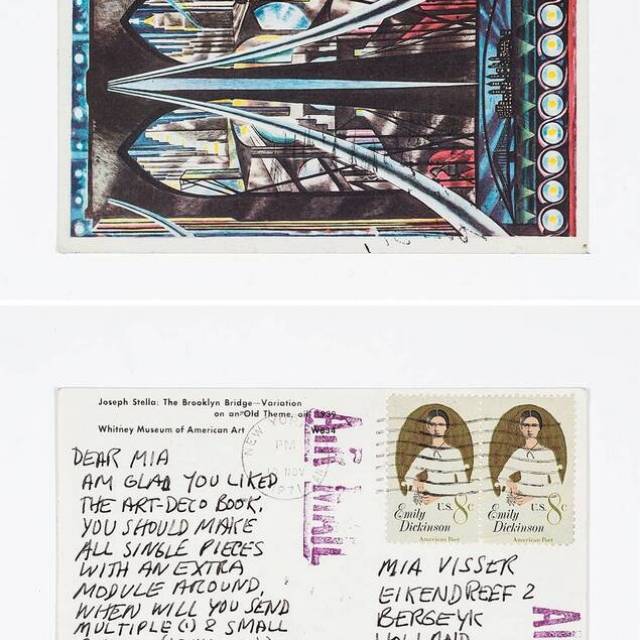 Joseph Stella: The Brooklyn Bridge—Variation
on an Old Theme, oil 1939
Whitney Museum of American Art
DEAR MIA
AM GLAD YOU LIKED
THE ART-DECO BOOK.
YOU SHOULD MAKE
ALL SINGLE PIECES
WITH AN EXTRA
MODULE AROUND,
WHEN WILL YOU SEND
MULTIPLE(S) & SMALL
NEW YORK
PM
10 NOV
AIR MAIL
Emily
Dickinson
U.S. 8c
American Poet
Emily
Dickinson
U.S. 8c
American Poet
MIA VISSER
EIKENDREEF 2
BERGEYK
HOLLAND